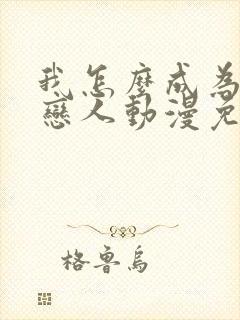 我怎麼成為
戀人動漫免
格魯烏